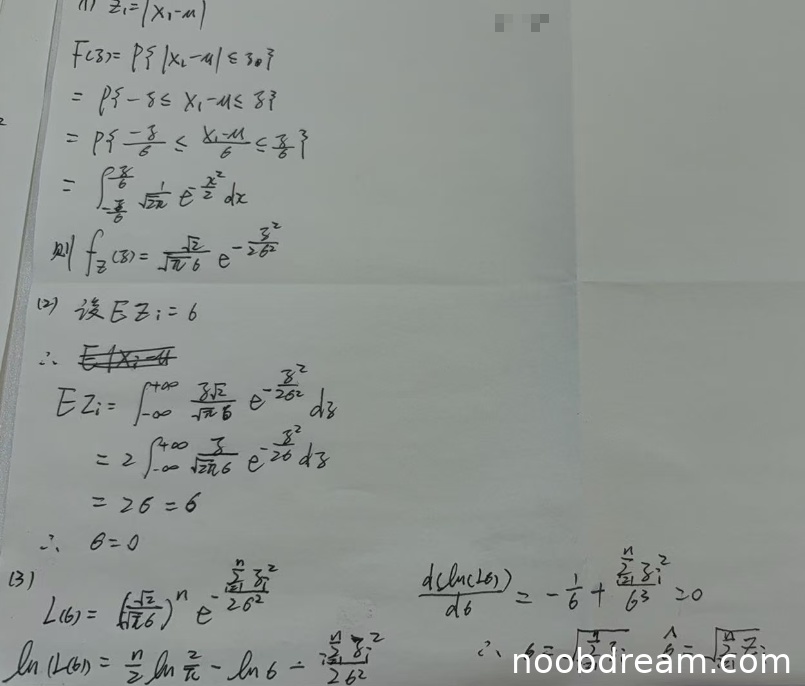 (1) Z₁=|X₁-μ|
F(z)=P{|X₁-μ|≤z}
=P{-z≤X₁-μ≤z}
=P{\frac{-z}{σ}≤\frac{X₁-μ}{σ}≤\frac{z}{σ}}
=∫_{-\frac{z}{σ}}^{\frac{z}{σ}} \frac{1}{\sqrt{2π}} e^{-\frac{x²}{2}}dx
则 f_Z(z)=\frac{\sqrt{2}}{\sqrt{π}σ} e^{-\frac{z²}{2σ²}}
(2) 设EZᵢ=σ
∴
EZᵢ=∫_{-∞}^{+∞} \frac{z\sqrt{2}}{\sqrt{π}σ} e^{-\frac{z²}{2σ²}}dz
=2∫_{-∞}^{+∞} \frac{z}{\sqrt{2π}σ} e^{-\frac{z²}{2σ}}dz
=2σ=σ
∴ σ=0
(3)
L(σ)=(\frac{\sqrt{2}}{\sqrt{π}σ})^n e^{-\frac{\sum_{i=1}^{n}zᵢ²}{2σ²}}
ln(L(σ))=\frac{n}{2}ln\frac{2}{π}-lnσ-\frac{\sum_{i=1}^{n}zᵢ²}{2σ²}
\frac{d(ln(Lσ))}{dσ}=-\frac{1}{σ}+\frac{\sum_{i=1}^{n}zᵢ²}{σ³}=0
∴ σ=
noobdream.com